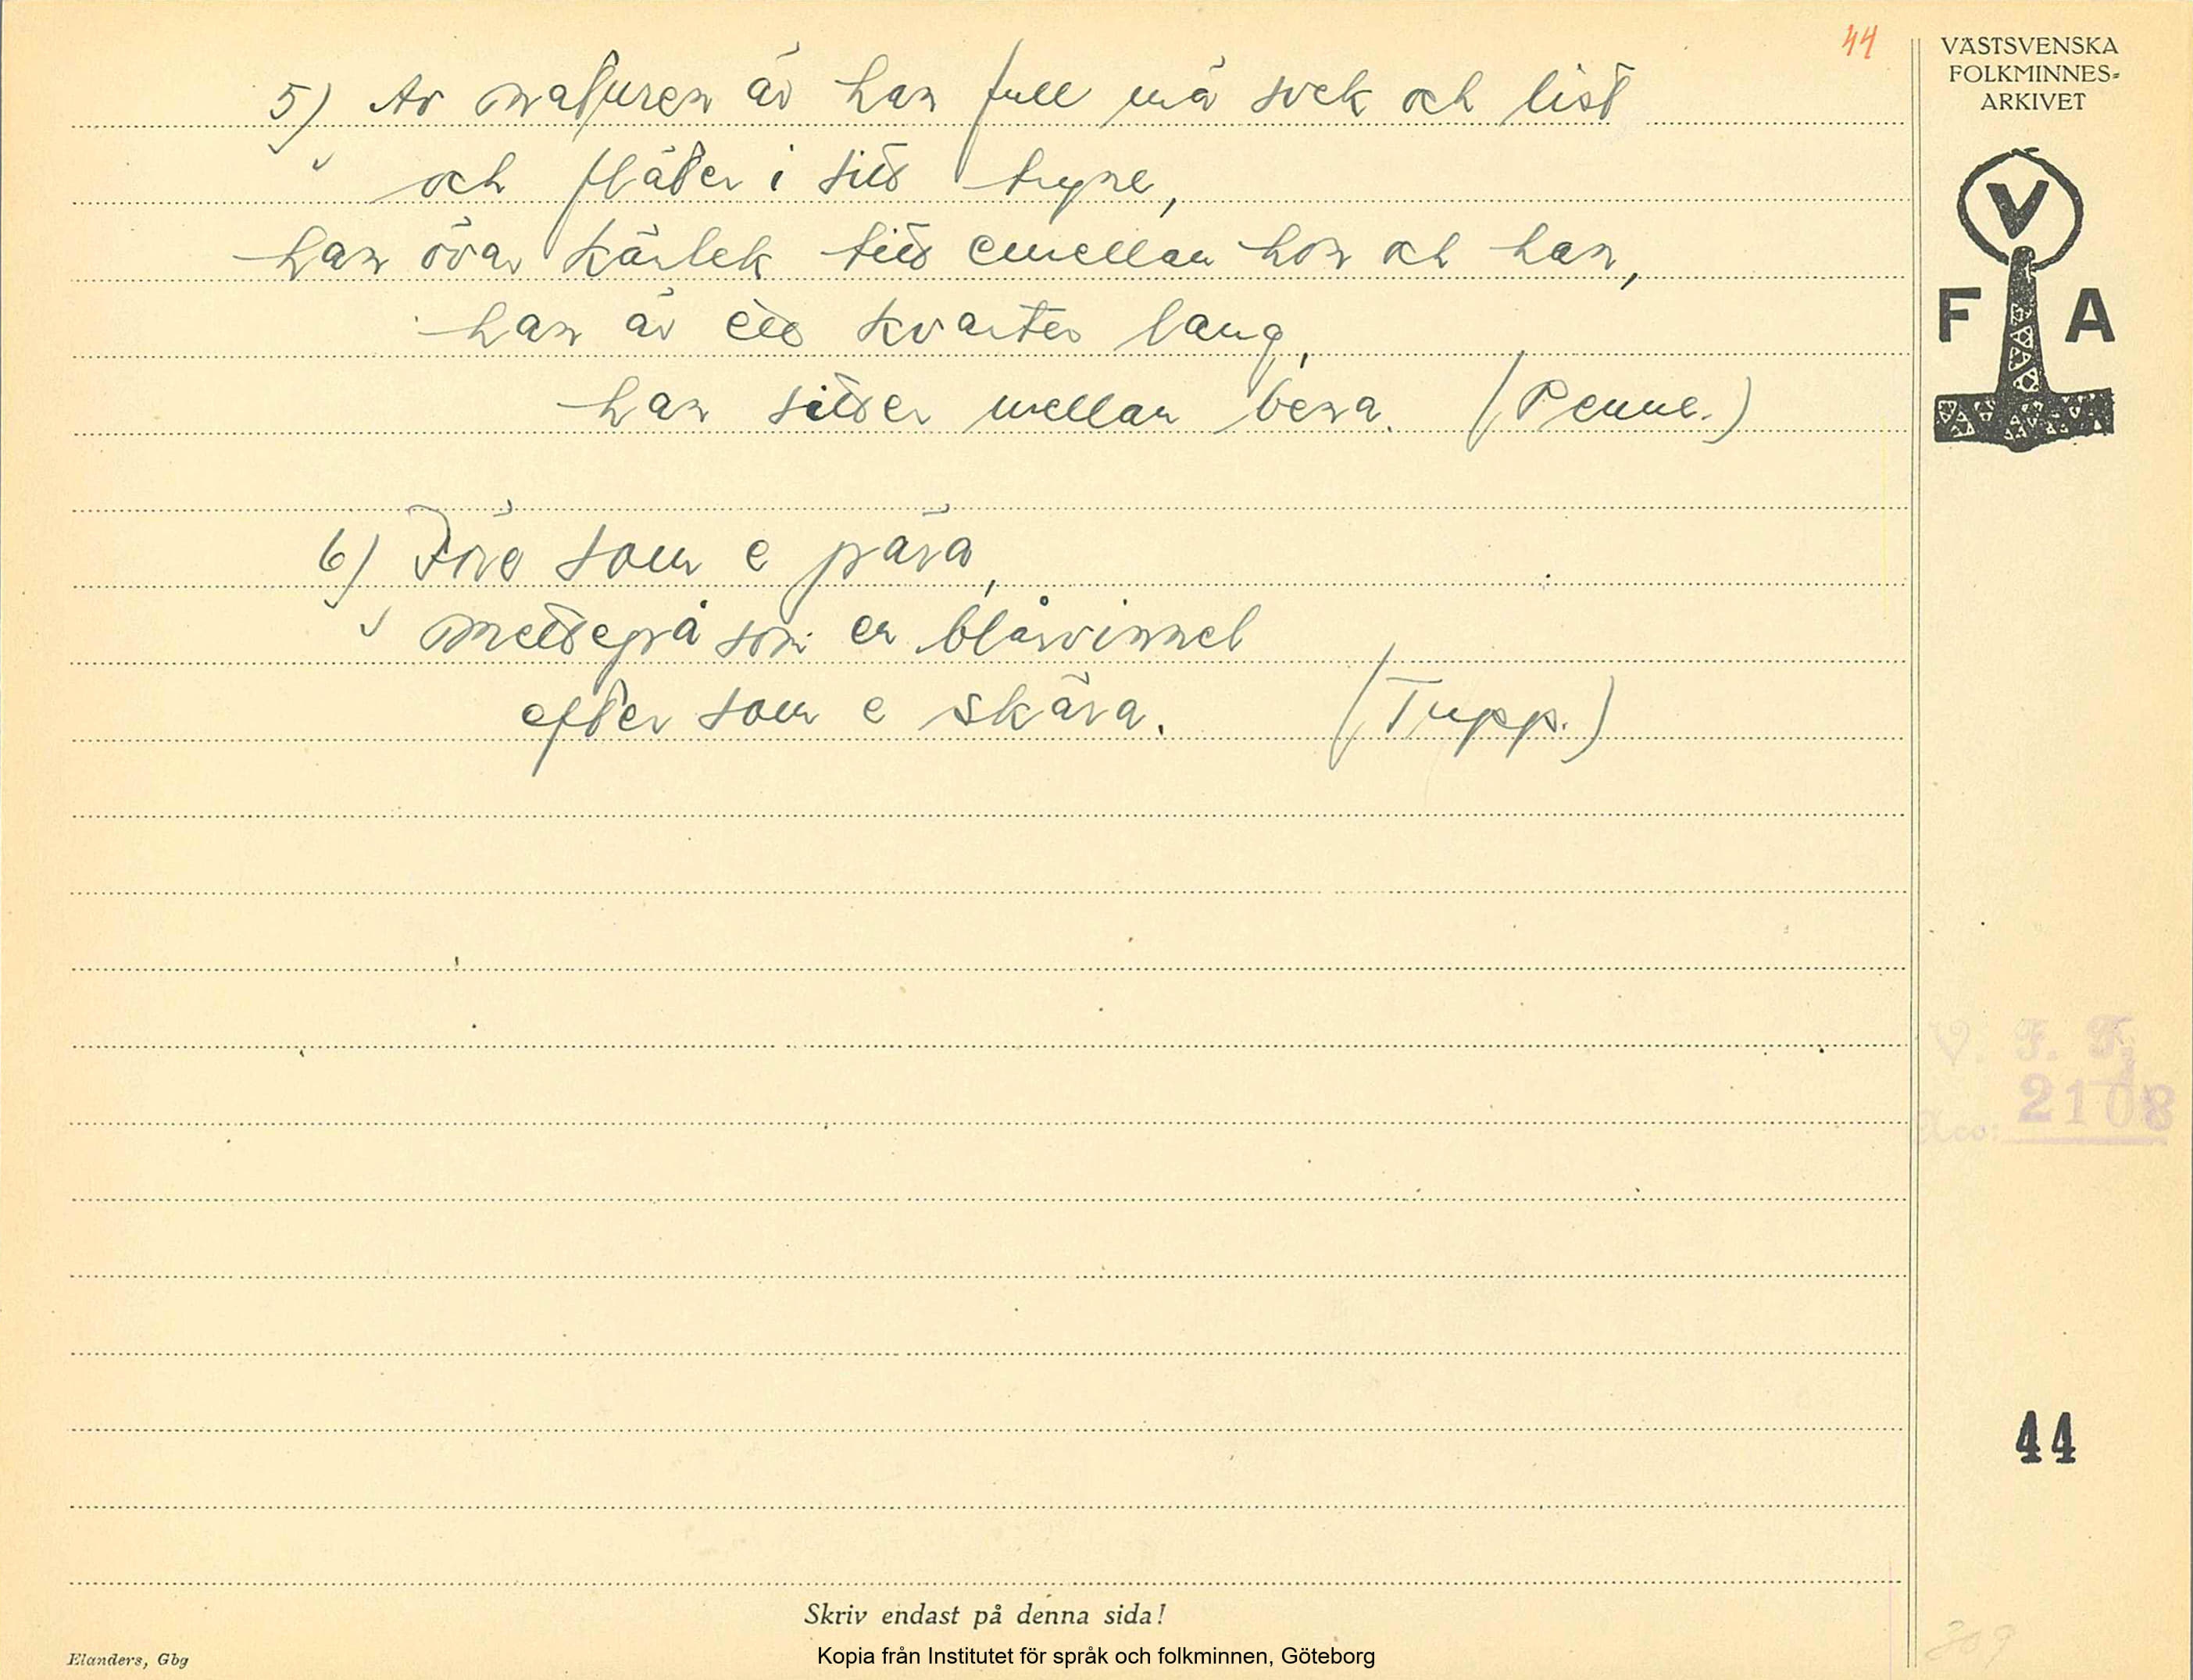 44
5) Av naturen är han full mä svek och list
och fläter i sitt tryne,
han övar kärlek titt emellan hon och han,
han är ett kvarter lang,
han sitter mellan bena. (Penne.)
6) Före som e pära,
mettepå som en blårvinnel
efter som e skära. (Tupp.)
VÄSTSVENSKA
FOLKMINNES-
ARKIVET
V
F A
V. F. F.
Acc: 2108
44
309
Skriv endast på denna sida!
Elanders, Gbg
Kopia från Institutet för språk och folkminnen, Göteborg